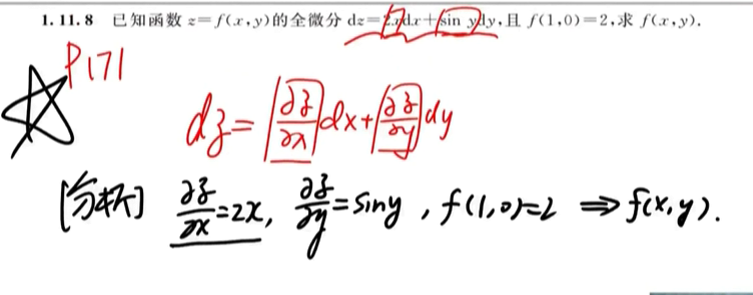 1.11.8 已知函数 z=f(x,y)的全微分 dz=2xdx+sin ydy,且 f(1,0)=2,求 f(x,y).
P171
dz=∂z/∂x dx+∂z/∂y dy
[分析] ∂z/∂x=2x, ∂z/∂y=siny, f(1,0)=2 ⇒f(x,y).